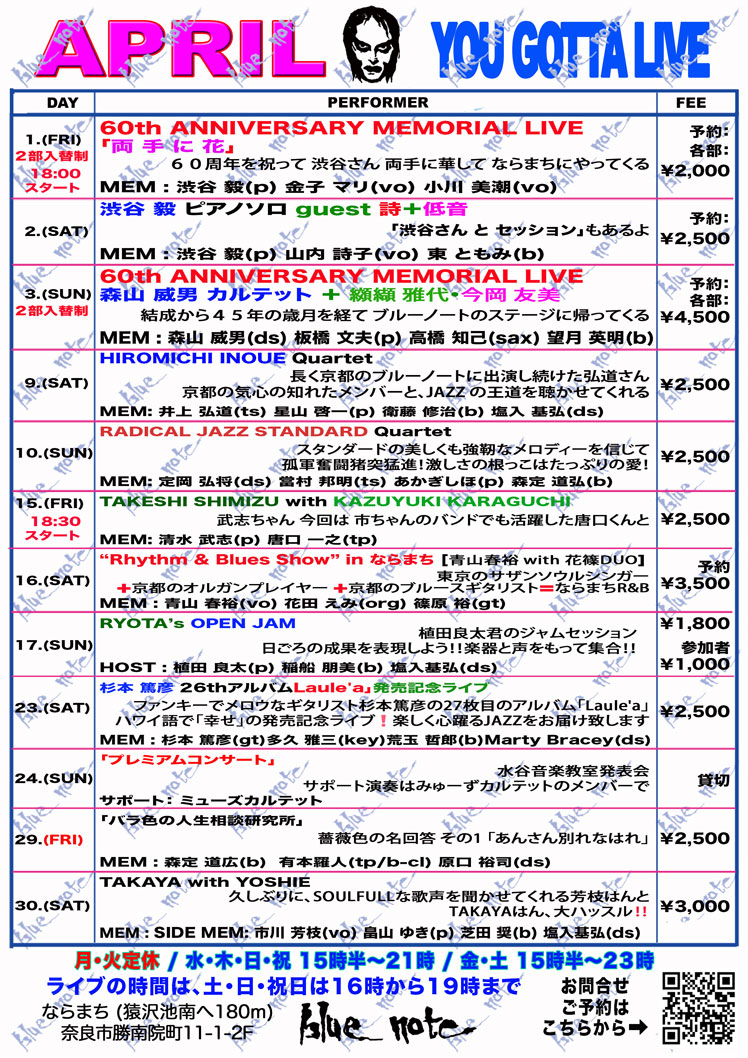 APRIL YOU GOTTA LIVE
DAY PERFORMER FEE
1.(FRI)
2部入替制
18:00
スタート
60th ANNIVERSARY MEMORIAL LIVE
「両 手 に 花」
６０周年を祝って 渋谷さん 両手に華して ならまちにやってくる
MEM : 渋谷 毅(p) 金子 マリ(vo) 小川 美潮(vo)
予約:
各部:
¥2,000
2.(SAT)
渋谷 毅 ピアノソロ guest 詩+低音
「渋谷さん と セッション」もあるよ
MEM : 渋谷 毅(p) 山内 詩子(vo) 東 ともみ(b)
予約:
¥2,500
3.(SUN)
2部入替制
60th ANNIVERSARY MEMORIAL LIVE
森山 威男 カルテット + 纐纈 雅代・今岡 友美
結成から４５年の歳月を経て ブルーノートのステージに帰ってくる
MEM : 森山 威男(ds) 板橋 文夫(p) 高橋 知己(sax) 望月 英明(b)
予約:
各部:
¥4,500
9.(SAT)
HIROMICHI INOUE Quartet
長く京都のブルーノートに出演し続けた弘道さん
京都の気心の知れたメンバーと、JAZZ の王道を聴かせてくれる
MEM: 井上 弘道(ts) 星山 啓一(p) 衛藤 修治(b) 塩入 基弘(ds)
¥2,500
10.(SUN)
RADICAL JAZZ STANDARD Quartet
スタンダードの美しくも強靭なメロディーを信じて
孤軍奮闘猪突猛進!激しさの根っこはたっぷりの愛!
MEM: 定岡 弘将(ds) 當村 邦明(ts) あかぎしほ(p) 森定 道弘(b)
¥2,500
15.(FRI)
18:30
スタート
TAKESHI SHIMIZU with KAZUYUKI KARAGUCHI
武志ちゃん 今回は 市ちゃんのバンドでも活躍した唐口くんと
MEM: 清水 武志(p) 唐口 一之(tp)
¥2,500
16.(SAT)
“Rhythm & Blues Show” in ならまち [青山春裕 with 花篠DUO]
東京のサザンソウルシンガー
+京都のオルガンプレイヤー +京都のブルースギタリスト=ならまちR&B
MEM : 青山 春裕(vo) 花田 えみ(org) 篠原 裕(gt)
予約
¥3,500
17.(SUN)
RYOTA's OPEN JAM
植田良太君のジャムセッション
日ごろの成果を表現しよう!!楽器と声をもって集合!!
HOST : 植田 良太(p) 稲船 朋美(b) 塩入基弘(ds)
¥1,800
参加者
¥1,000
23.(SAT)
杉本 篤彦 26thアルバムLaule'a」発売記念ライブ
ファンキーでメロウなギタリスト杉本篤彦の27枚目のアルバム「Laule'a」
ハワイ語で「幸せ」の発売記念ライブ！楽しく心躍るJAZZをお届け致します
MEM : 杉本 篤彦(gt)多久 雅三(key)荒玉 哲郎(b)Marty Bracey(ds)
¥2,500
24.(SUN)
「プレミアムコンサート」
水谷音楽教室発表会
サポート演奏はみゅーずカルテットのメンバーで
サポート: ミューズカルテット
貸切
29.(FRI)
「バラ色の人生相談研究所」
薔薇色の名回答 その1 「あんさん別れなはれ」
MEM : 森定 道広(b) 有本羅人(tp/b-cl) 原口 裕司(ds)
¥2,500
30.(SAT)
TAKAYA with YOSHIE
久しぶりに、SOULFULLな歌声を聞かせてくれる芳枝はんと
TAKAYAはん、大ハッスル!!
MEM : SIDE MEM: 市川 芳枝(vo) 畠山 ゆき(p) 芝田 奨(b) 塩入基弘(ds)
¥3,000
月・火定休 / 水・木・日・祝 15時半〜21時 / 金・土 15時半〜23時
ライブの時間は、土・日・祝日は16時から19時まで
ならまち (猿沢池南へ180m)
奈良市勝南院町11-1-2F
blue note
お問合せ
ご予約は
こちらから➡